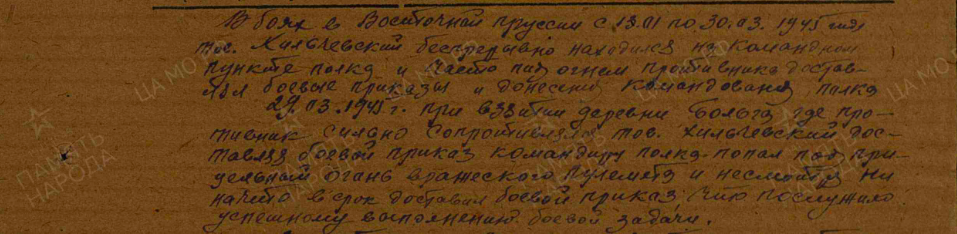 В боях в Восточной Пруссии с 13.01 по 30.03.1945 года
тов. Хильчевский беспрерывно находился на командном
пункте полка и часто под огнем противника достав-
лял боевые приказы и донесения командования полка
29.03.1945 г. при взятии деревни Больга, где про-
тивник сильно сопротивлялся тов. Хильчевский дос-
тавляя боевой приказ командиру полка попал под при-
цельный огонь вражеского пулемета и несмотря ни
на что в срок доставил боевой приказ что послужило
успешному выполнению боевой задачи.
ЦА МО
ПАМЯТЬ
НАРОДА
ЦА МО
ПАМЯТЬ
НАРОДА